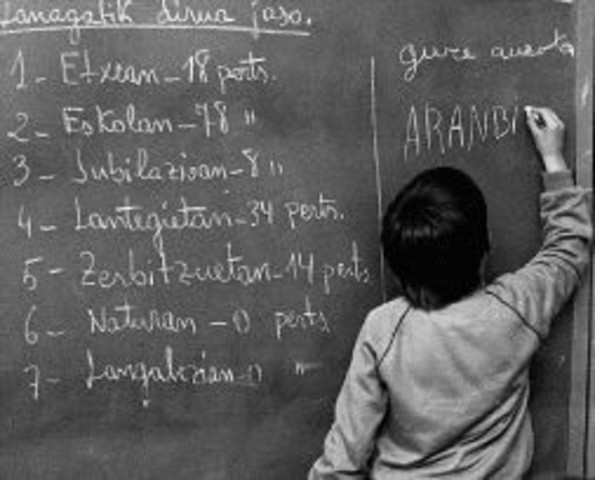 Lanagatik dirua jaso.
1- Etxean-18 perts.
2- Eskolan-78 "
3- Jubilazioan-8 "
4- Lantegietan-34 perts.
5- Zerbitzuetan-14 perts
6- Naturan-0 perts
7- Langabezian-0 "
gure auzoa
ARANBI